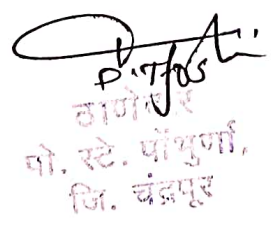 ठाणेदार
पो. स्टे. पोंभुर्णा,
जि. चंद्रपूर